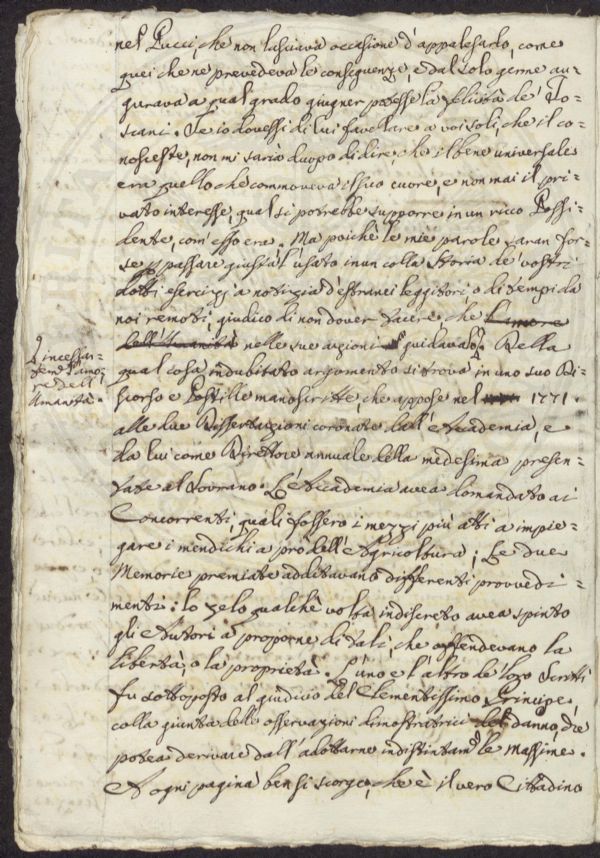 nel Pucci, che non lasciava occasione d'appalesarlo, come
quei che ne prevedeva le conseguenze, e dal solo germe au-
gurava a qual grado giugner potesse la felicità de' To-
scani. Se io dovessi di lui favellare a voi soli, che il co-
nosceste, non mi saria duopo di dire che il bene universale
era quello che commoveva il suo cuore, e non mai il pri-
vato interesse, qual si potrebbe supporre in un ricco Possi-
dente, com' esso era. Ma poichè le mie parole saran for-
se p passare giusta l'usato in un colla storia de' vostri
dotti esercizj a notizia d'estranei leggitori, o di tempi da
noi remoti, giudico di non dover tacere che l'amore
dell'Umanità nelle sue azioni guidavalo. Della
L'incessan-
tem. l'amo-
re dell'
Umanità.
qual cosa indubitato argomento si trova in uno suo Di-
scorso e Postille manoscritte, che appose nel 1771.
alle due Dissertazioni coronate dall'Accademia, e
da lui come Direttore annuale della medesima presen-
tate al Sovrano. L'Accademia avea domandato ai
Concorrenti, quali fossero i mezzi più atti a impie-
gare i mendichi a pro dell'Agricoltura; Le due
Memorie premiate additavano differenti provvedi-
menti: lo zelo qualche volta indiscreto avea spinto
gli Autori a proporne di tali, che offendevano la
libertà, o la proprietà. L'uno e l'altro de' loro Scritti
fu sottoposto al giudizio del Clementissimo Principe
colla giunta delle osservazioni dimostratrici danno, che
potea derivare dall'adottarne indistintam.e le massime.
A ogni pagina ben si scorge, che è il vero Cittadino